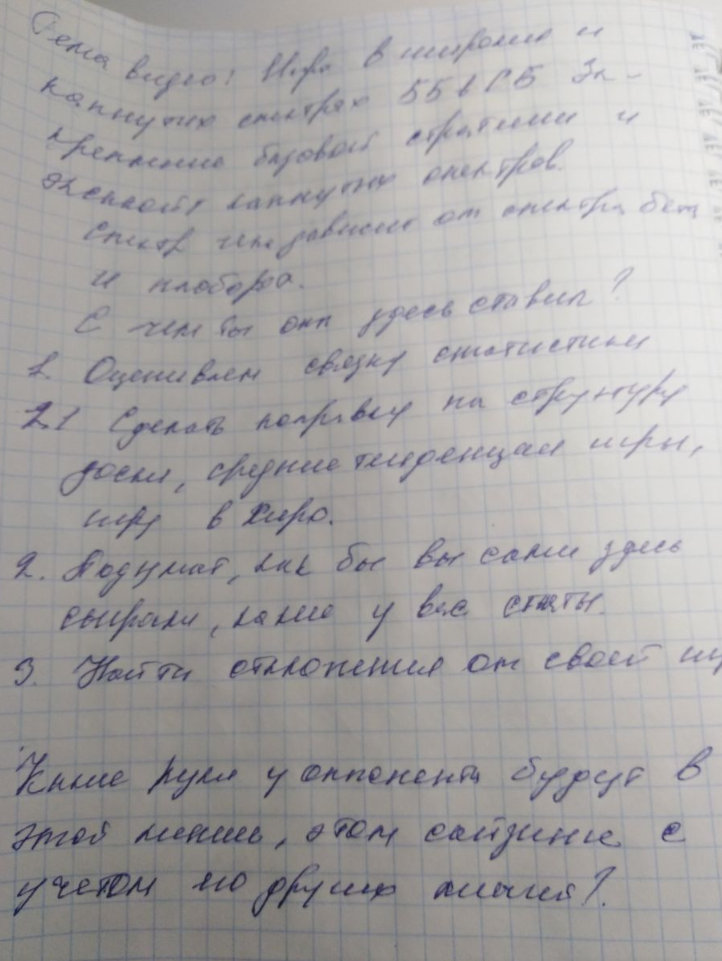 Тема видео: Игра в широких и
капнутых спектрах ББ в СБ За-
крепление базовой стратегии и
эксплойт капнутых спектров.
Спектр чека зависит от спектра бета
и плоборда.
С чем бы опп здесь ставил?
1. Оцениваем связку статистики
1.1 Сделать поправку на структуру
доски, средние тенденции игры,
игру в Хиро.
2. Подумать, как бы вы сами здесь
сыграли, какие у вас статы.
3. Найти отклонения от своей
Какие руки у оппонента будут в
этой линии, этом сайзинге с
учетом его других линий?